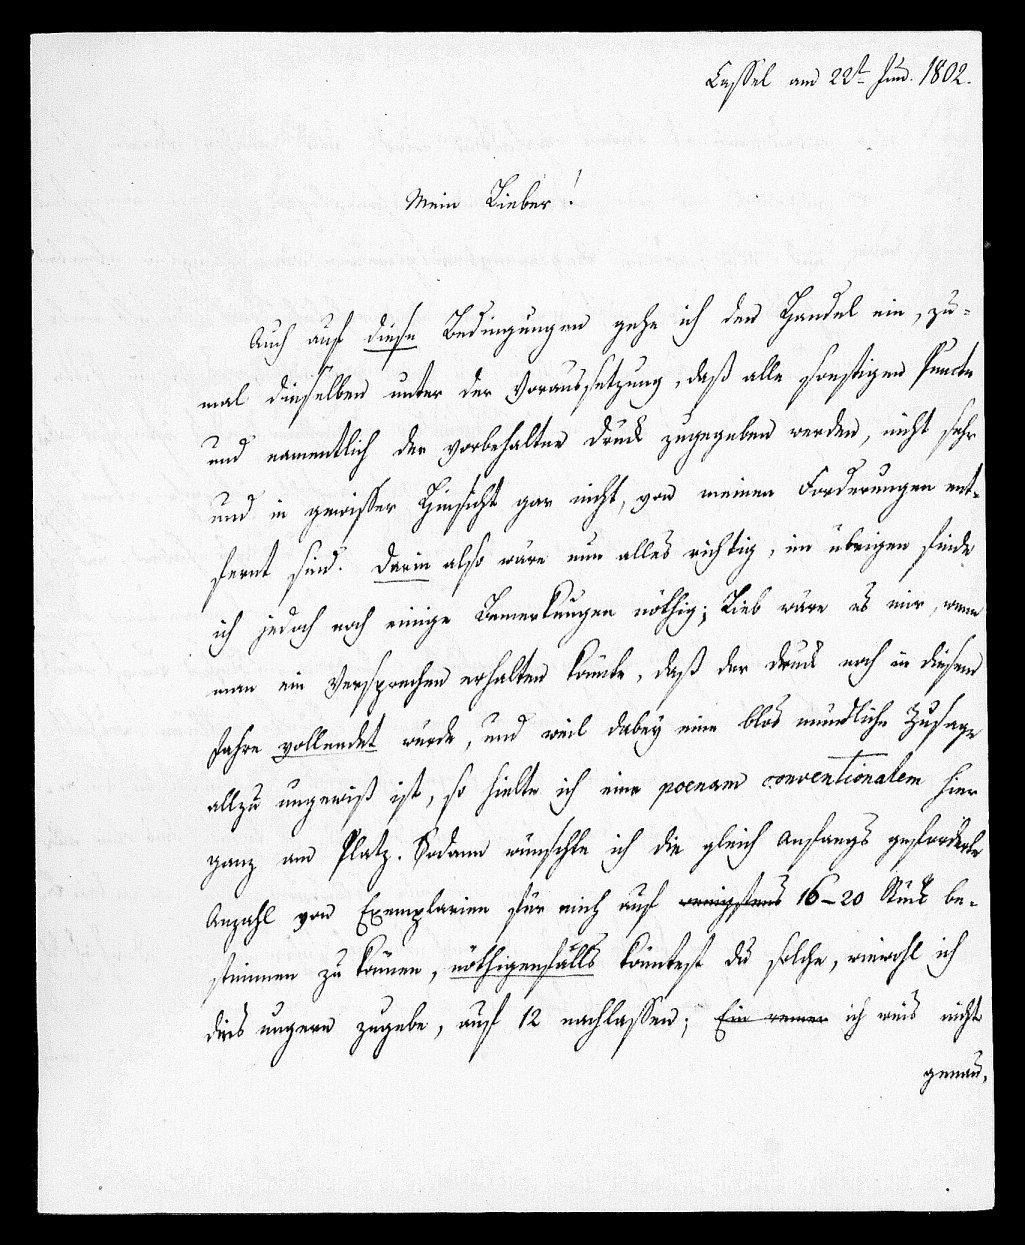 Cassel am 22t Jun. 1802.
Mein Lieber!
Auch auf diese Bedingungen gehe ich den Handel ein, zu-
mal dieselben unter der Voraussetzung, daß alle sonstigen Puncte
und namentlich der vorbehaltne Druck zugegeben werden, nicht sehr
und in gewisser Hinsicht gar nicht, von meinen Forderungen ent-
fernt sind. Darin also wäre nun alles richtig, im übrigen finde
ich jedoch noch einige Bemerkungen nöthig; Lieb wäre es mir, wenn
man ein Versprechen erhalten könnte, daß der Druck noch in diesem
Jahre vollendet würde, und weil dabey eine blos mündliche Zusage
allzu ungewiß ist, so hielte ich eine poenam conventionalem hier
ganz am Platz. Sodann wünschte ich die gleich Anfangs geforderte
Anzahl von Exemplarien für mich auf wenigstens 16-20 Stück be-
stimmen zu können, nöthigenfalls könntest du solche, wiewohl ich
dies ungern zugebe, auf 12 nachlassen; ich weis nicht
genau,